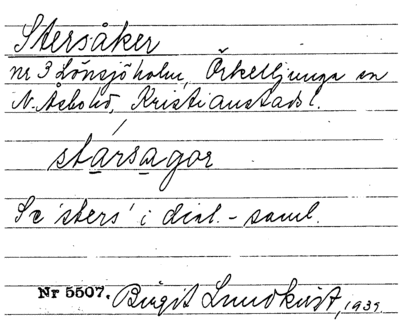 Stersåker
nr 3 Lönsjöholm, Örkelljunga sn
N. Åsbo hd, Kristianstads l.
stársagor
Se 'sters' i dial.-saml.
Nr 5507. Birgit Lundkvist, 1935.